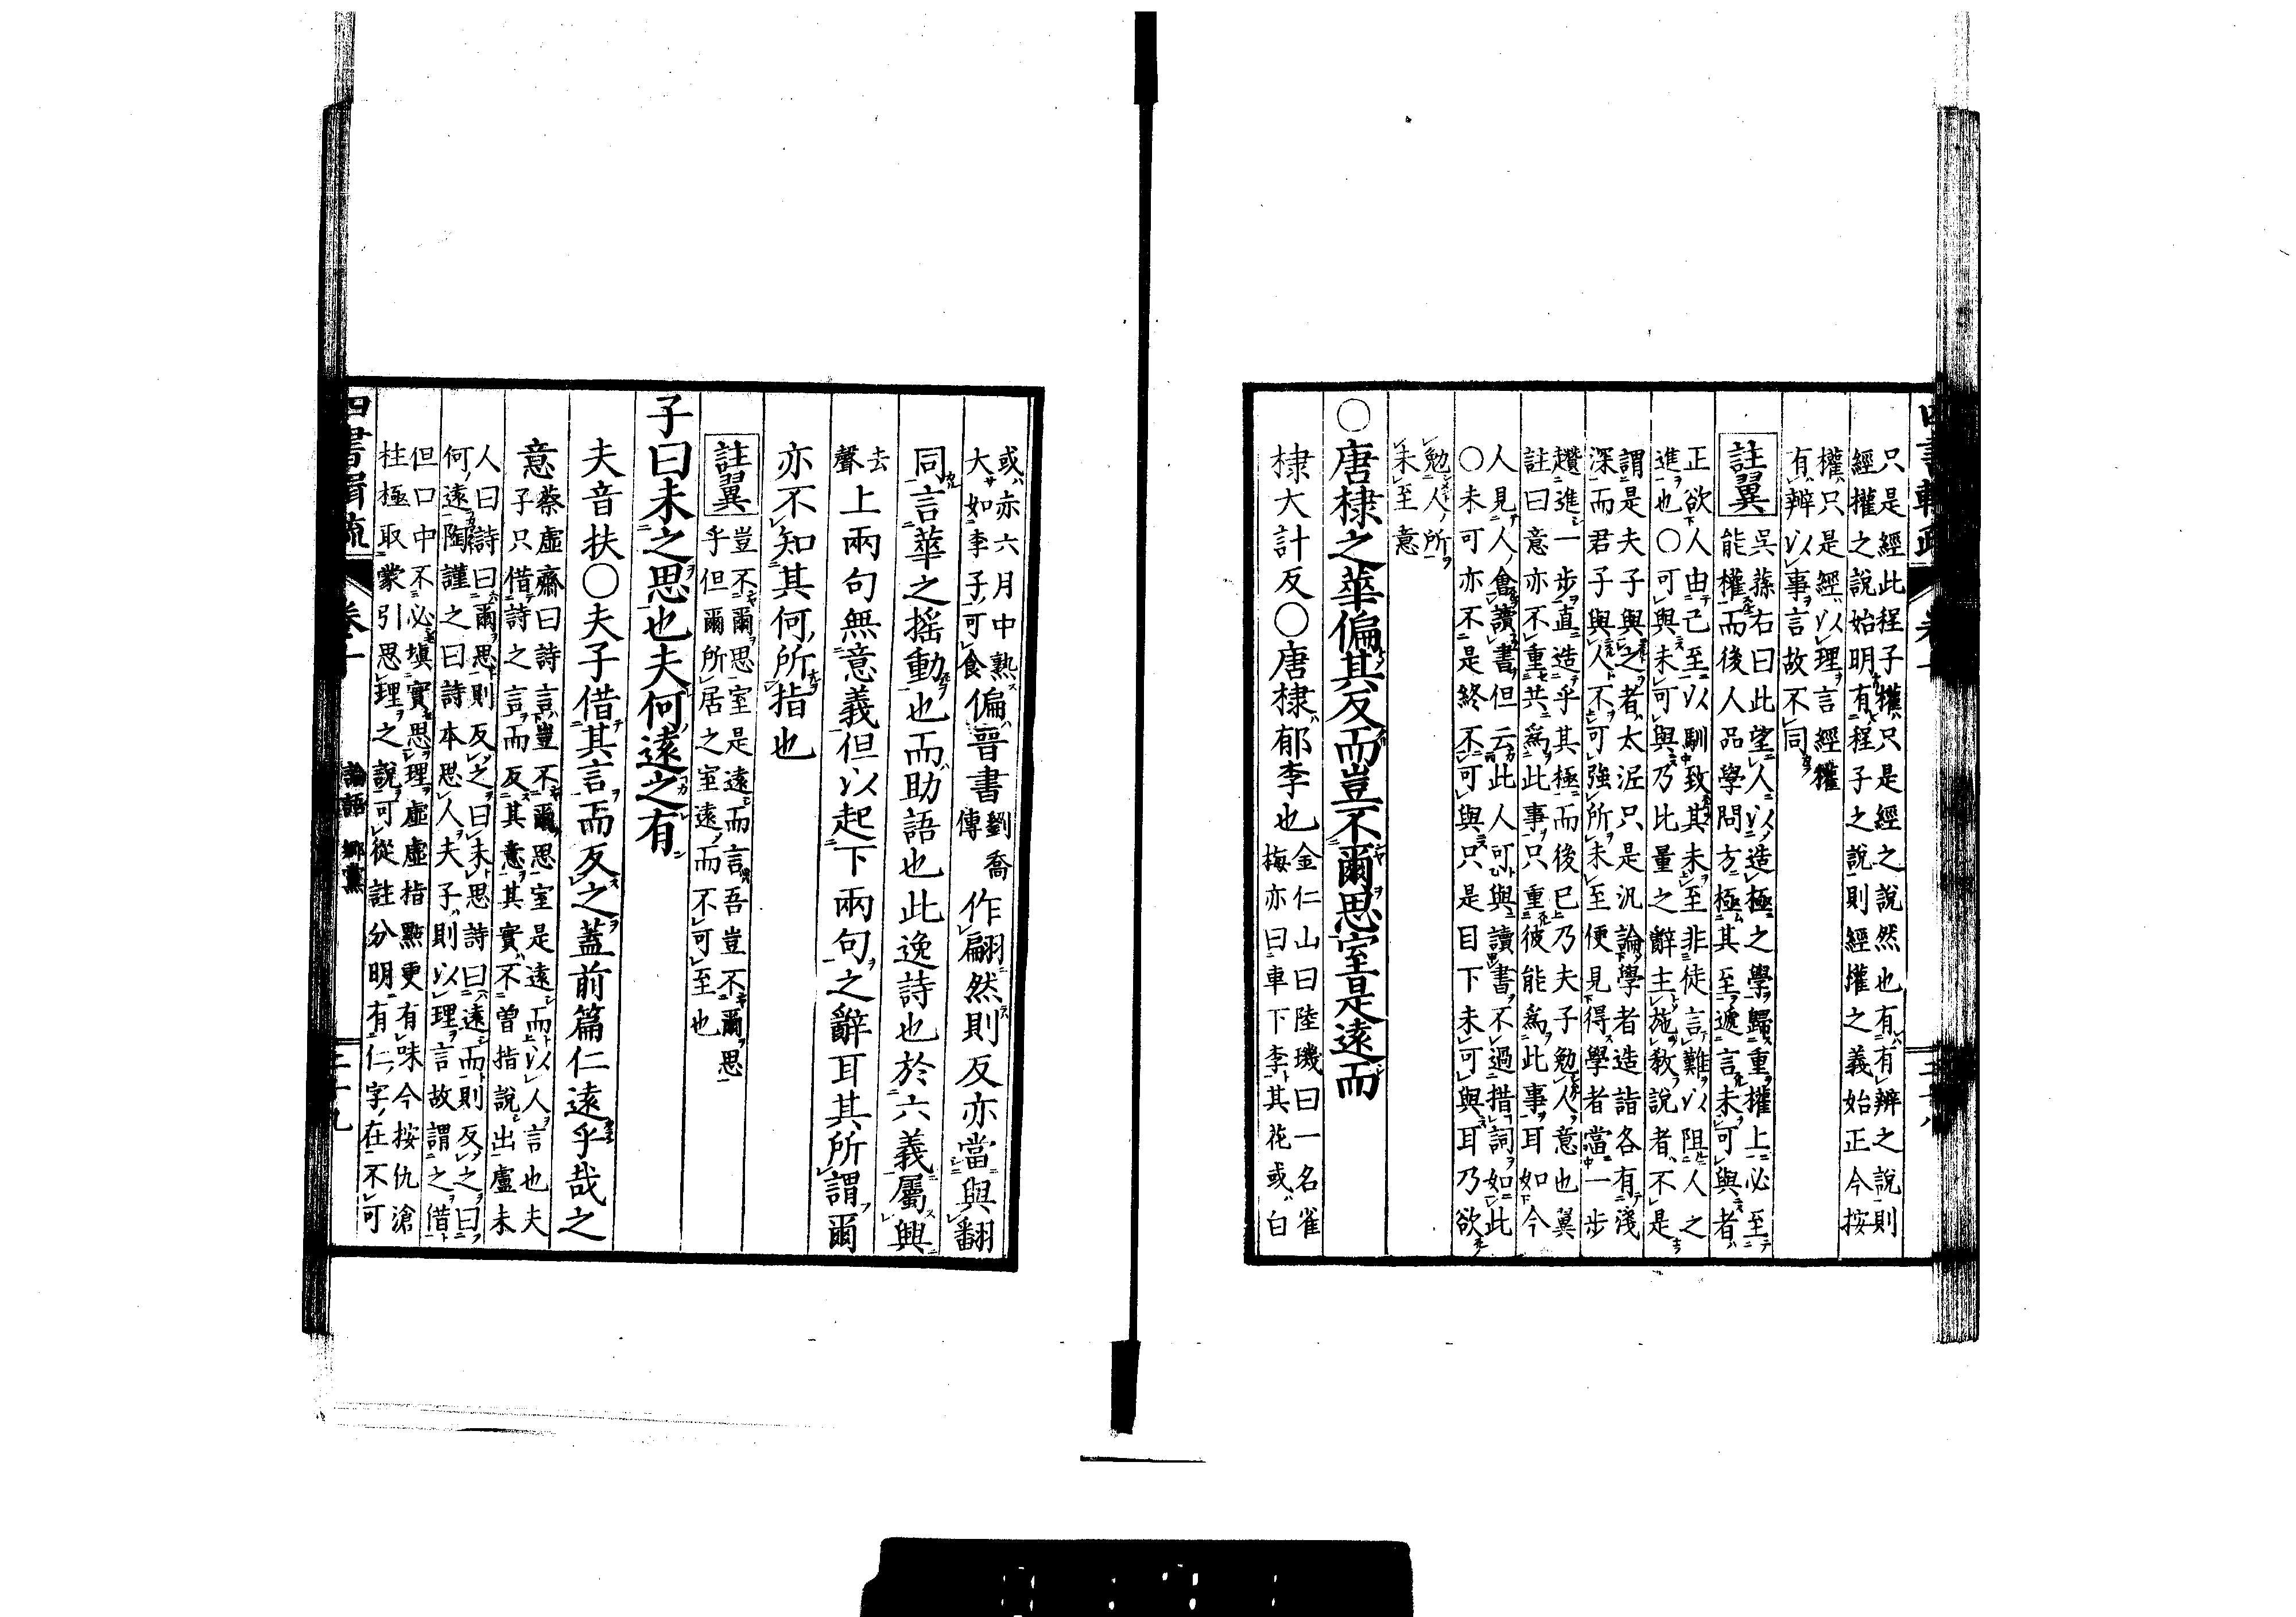 只是經此程子權只是經之說然也有有辨之說則
經權之說始明有程子之說則經權之義始正今按
權只是經以理言經權
有辨以事言故不同
註翼
吳蓀右曰此望人以造極之學歸重權上必至
能權而後人品學問方極其至遞言未可與者
正欲人由己至以馴致其未至非徒言難以阻人之
進也○可與未可與乃比量之辭主施教說者不是
謂是夫子與之者太泥只是汎論學者造詣各有淺
深而君子與人不可強所未至便見得學者當一步
趲進一步直造乎其極而後已乃夫子勉人意也翼
註曰意亦不重共爲此事只重彼能爲此事耳如今
人見人會讀書但云此人可與讀書不過措詞如此
○未可亦不是終不可與只是目下未可與耳乃欲
勉人所
未至意
○唐棣之華偏其反而豈不爾思室是遠而
棣大計反○唐棣郁李也
金仁山曰陸璣曰一名雀
梅亦曰車下李其花或白
或亦六月中熟
大如李子可食
偏晉書
劉喬
傳
作翩然則反亦當與翻
同言華之摇動也而助語也此逸詩也於六義屬興
去
聲
上兩句無意義但以起下兩句之辭耳其所謂爾
亦不知其何所指也
註翼
豈不爾思室是遠而言吾豈不爾思
乎但爾所居之室遠而不可至也
子曰未之思也夫何遠之有
夫音扶○夫子借其言而反之蓋前篇仁遠乎哉之
意
蔡虛齋曰詩言豈不爾思室是遠而以人言也夫
子只借詩之言而反其意其實不曾指說出盧未
人曰詩曰爾思則反之曰未思詩曰遠而則反之曰
何遠陶謹之曰詩本思人夫子則以理言故謂之借
但口中不必塡實思理虛虛指點更有味今按仇滄
柱極取蒙引思理之說可從註分明有仁字在不可
四書輯疏
論語
鄉黨